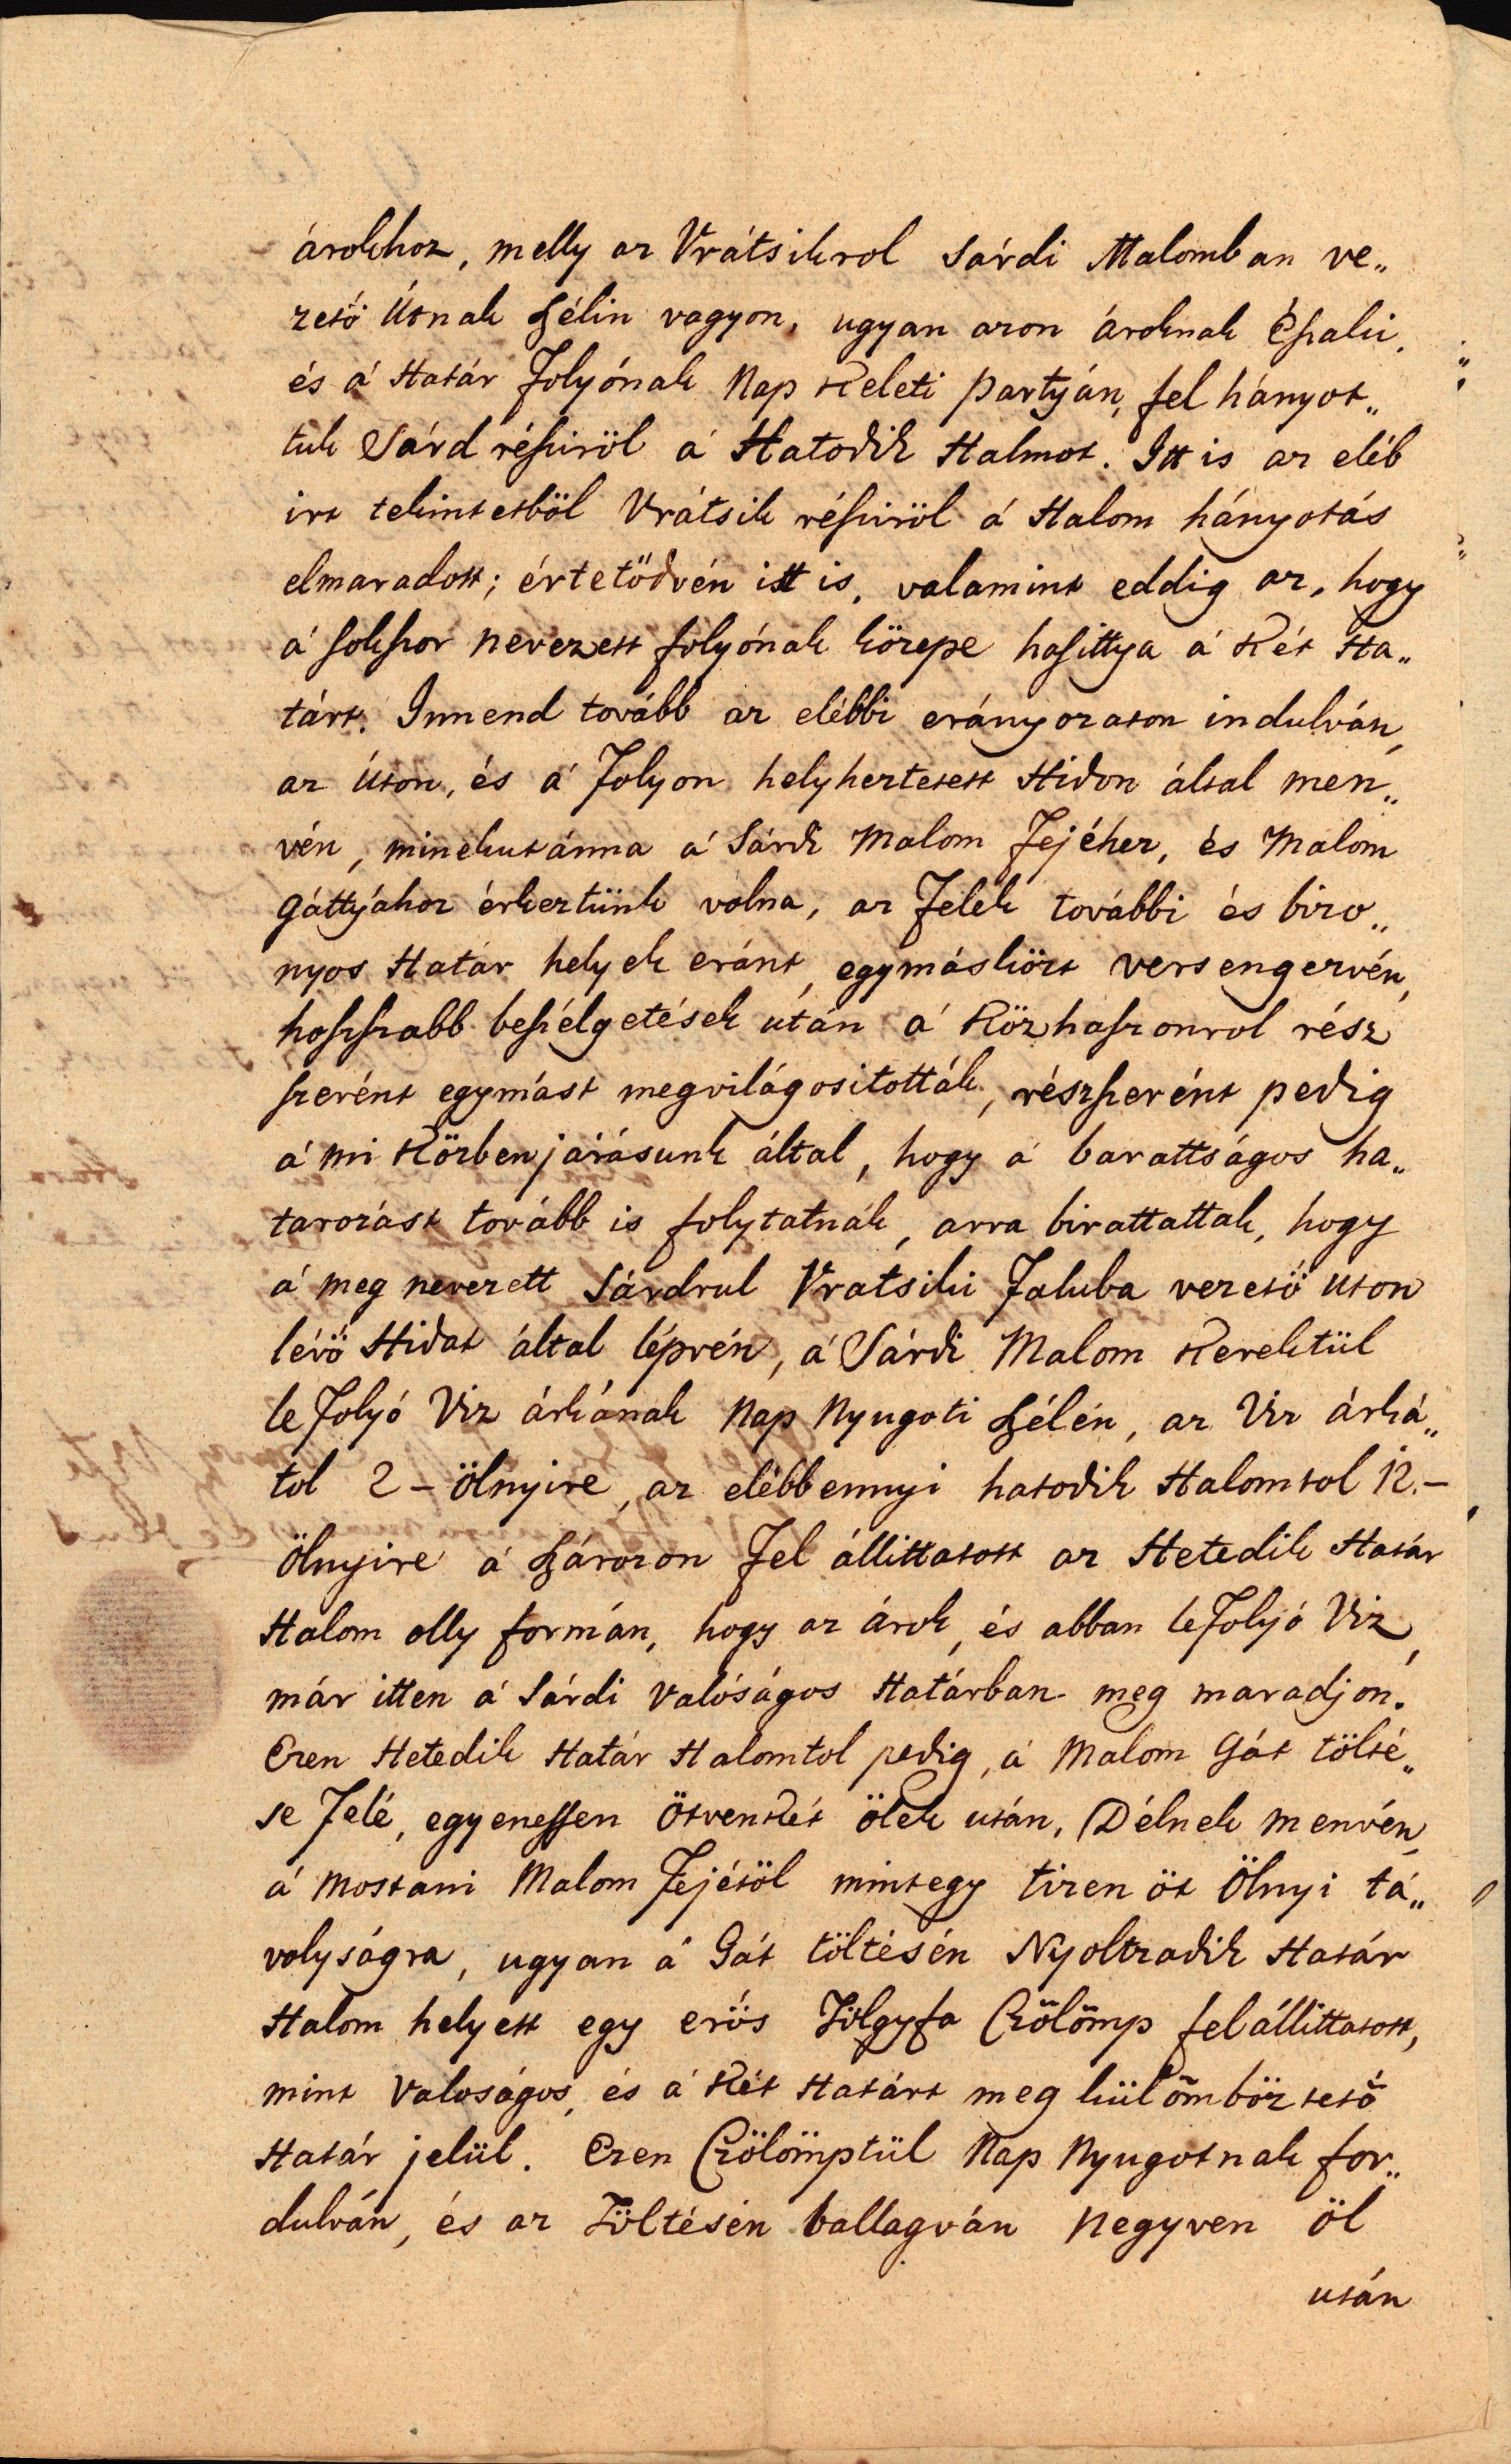 árokhoz, melly az Vrátsikrol Sárdi Malomban ve„
zető Útnak szélin vagyon, ugyan azon ároknak Északi,
és á Határ Folyónak Nap Keleti partyán, fel hányot„
tuk Sárd résziröl á Hatodik Halmot. Itt is az eléb
irt tekintetböl Vrátsik résziröl á Halom hányotás
elmaradott; értetődvén itt is, valamint eddig az, hogy
á sokszor nevezett folyónak közepe hasittya á Két Ha„
tárt. Innend tovább az elébbi erányozaton indulván,
az Úton, és á Folyon helyheztetett Hidon által men„
vén, minekutánna á Sárdi Malom Fejéhez, és Malom
gáttyához érkeztünk volna, az Felek további és bizo„
nyos Határ helyek eránt, egymásközt versengezvén,
hoszszabb beszélgetések után á Közhaszonrol rész
szerént egymást megvilágositották, részszerént pedig
á mi Közbenjárásunk által, hogy á barattságos ha„
tarozást tovább is folytatnák, arra birattattak, hogy
á meg nevezett Sárdrul Vratsiki Faluba vezető uton
lévő Hidat által lépvén, á Sárdi Malom Kerektül
le Folyó Viz árkának Nap Nyugoti szélén, az Viz árká„
tol 2 – Ölnyire, az elébbennyi hatodik Halomtol 12. –
Ölnyire á Szározon Fel állittatott az Hetedik Határ
Halom olly formán, hogy az árok, és abban le Folyó Viz,
már itten á Sárdi Valóságos Határban meg maradjon.
Ezen Hetedik Határ Halomtol pedig, á Malom Gát tölté„
se Felé, egyenessen ötvenkét ölek után, Délnek menvén,
á mostani Malom Fejétöl mintegy tizen öt Ölnyi tá„
volyságra, ugyan á Gát töltésén Nyoltzadik Határ
Halom helyett egy erös Tölgyfa Czölömp felállittatott,
mint Valoságos, és á Két Határt meg külömböztető
Határ jelül. Ezen Czölömptül Nap Nyugotnak for„
dulván, és az Töltésén ballagván Negyven öl
után